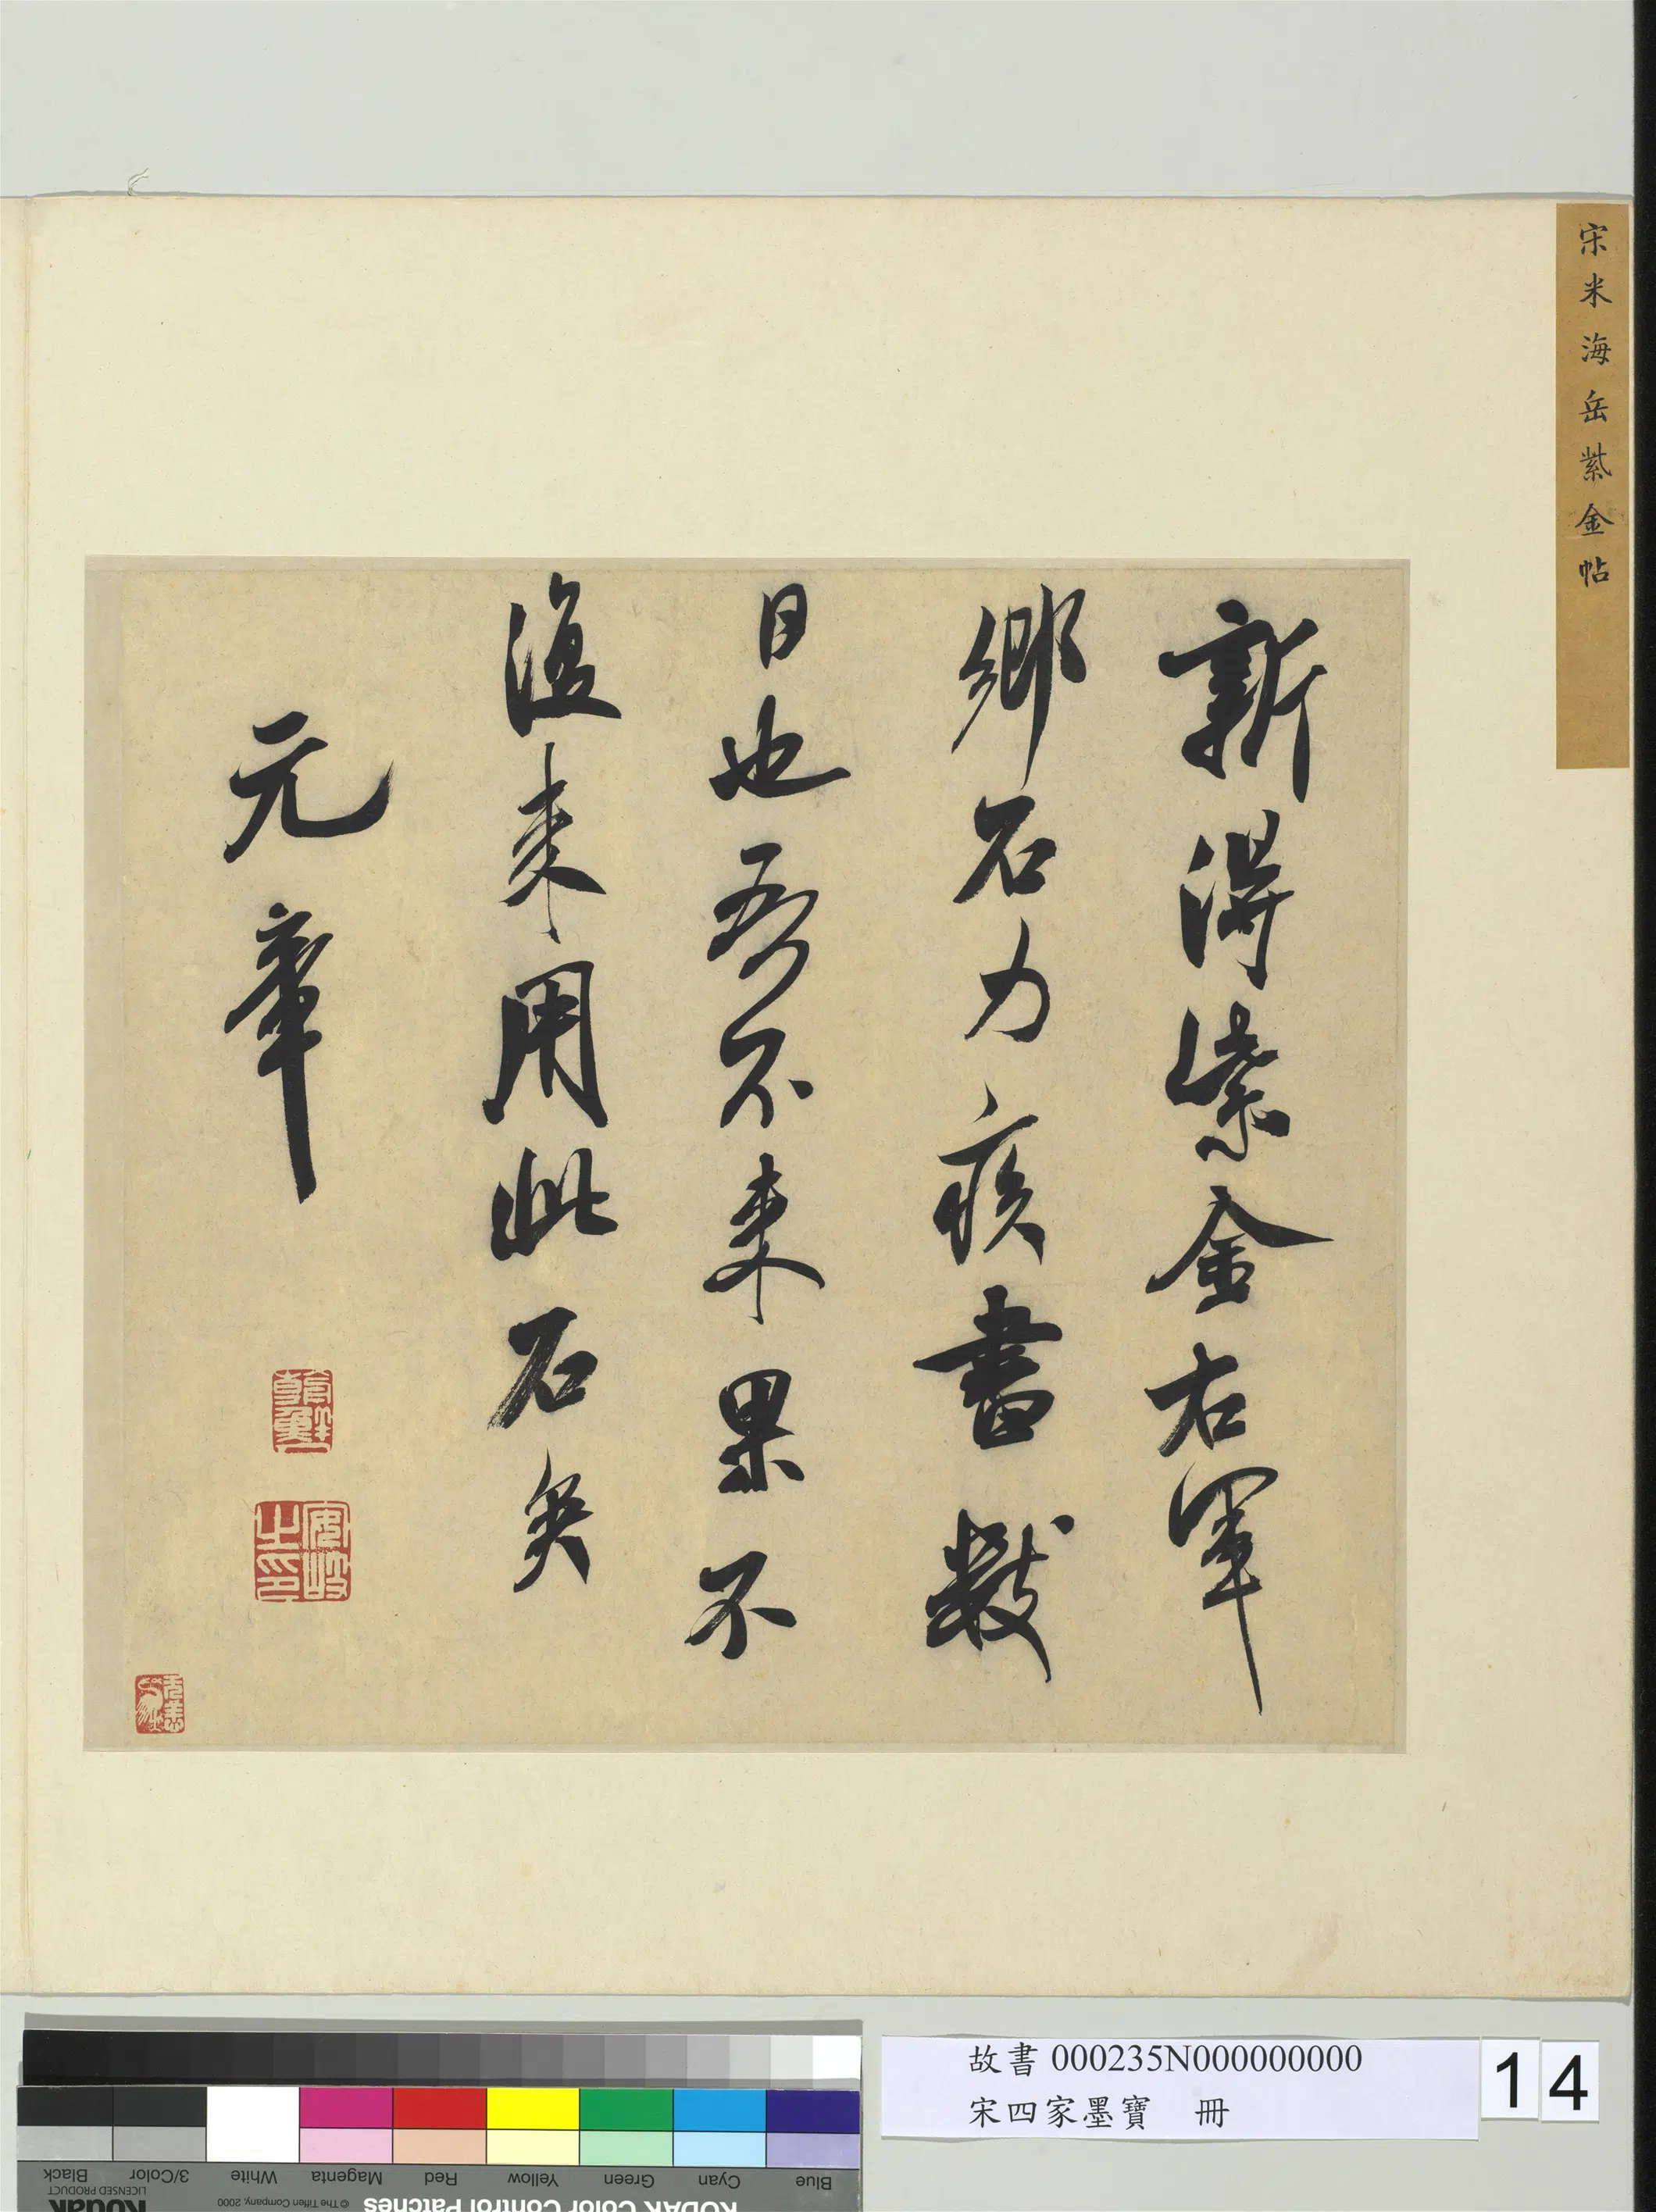 宋米海岳紫金帖
新得紫金右軍
鄉石力疾書數
日也吾不来果不
復来用此石矣
元章
安岐之印
故書 000235N000000000
宋四家墨寶 冊
14
KODAK Color Control Patches
Blue Cyan Green Yellow Red Magenta White 3/Color Black
© The Tiffen Company, 2000
Kodak
LICENSED PRODUCT